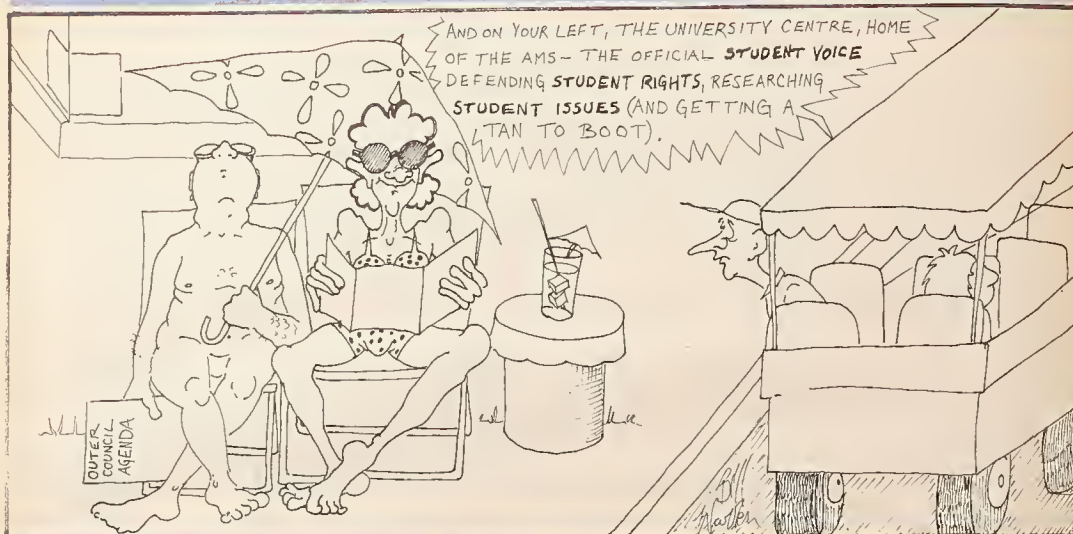 AND ON YOUR LEFT, THE UNIVERSITY CENTRE, HOME
OF THE AMS- THE OFFICIAL STUDENT VOICE
DEFENDING STUDENT RIGHTS, RESEARCHING
STUDENT ISSUES (AND GETTING A
TAN TO BOOT).
OUTER
COUNCIL
AGENDA
Bill